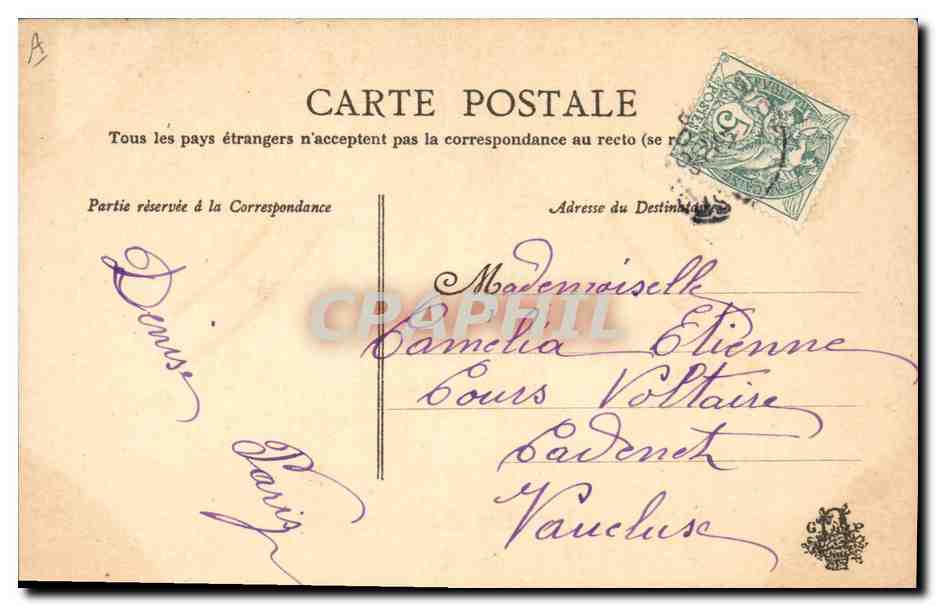 A
CARTE POSTALE
Tous les pays étrangers n'acceptent pas la correspondance au recto (se
Partie réservée à la Correspondance
Adresse du Destinataire
Denise
Paris
Mademoiselle
Camelia Etienne
Cours Voltaire
Cadenet
Vaucluse
CPAPHIL
5
G P